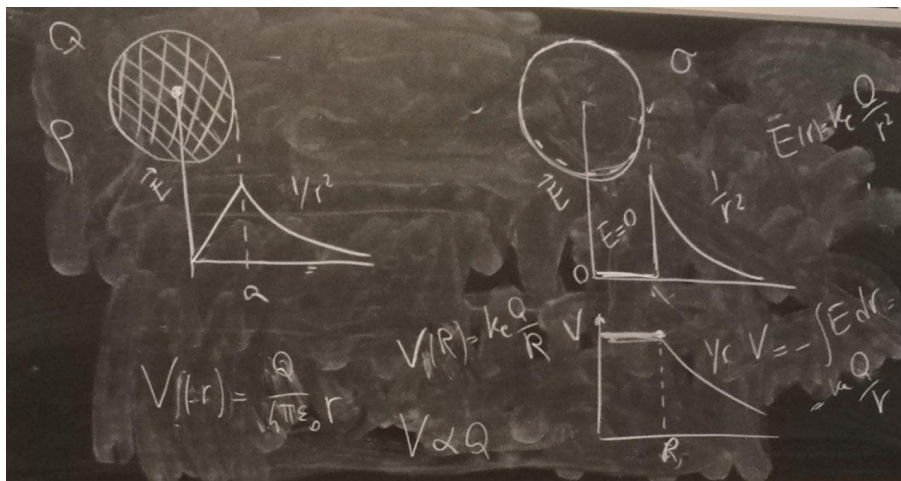 Q
ρ
E
1/r²
a
V(r) = Q / 4πε₀ r
σ
E(r) = kₑ Q/r²
E
E=0
1/r²
0
V(R) = kₑ Q/R
V ∝ Q
V
1/r
V = -∫E dr =
= kₑ Q/r
R